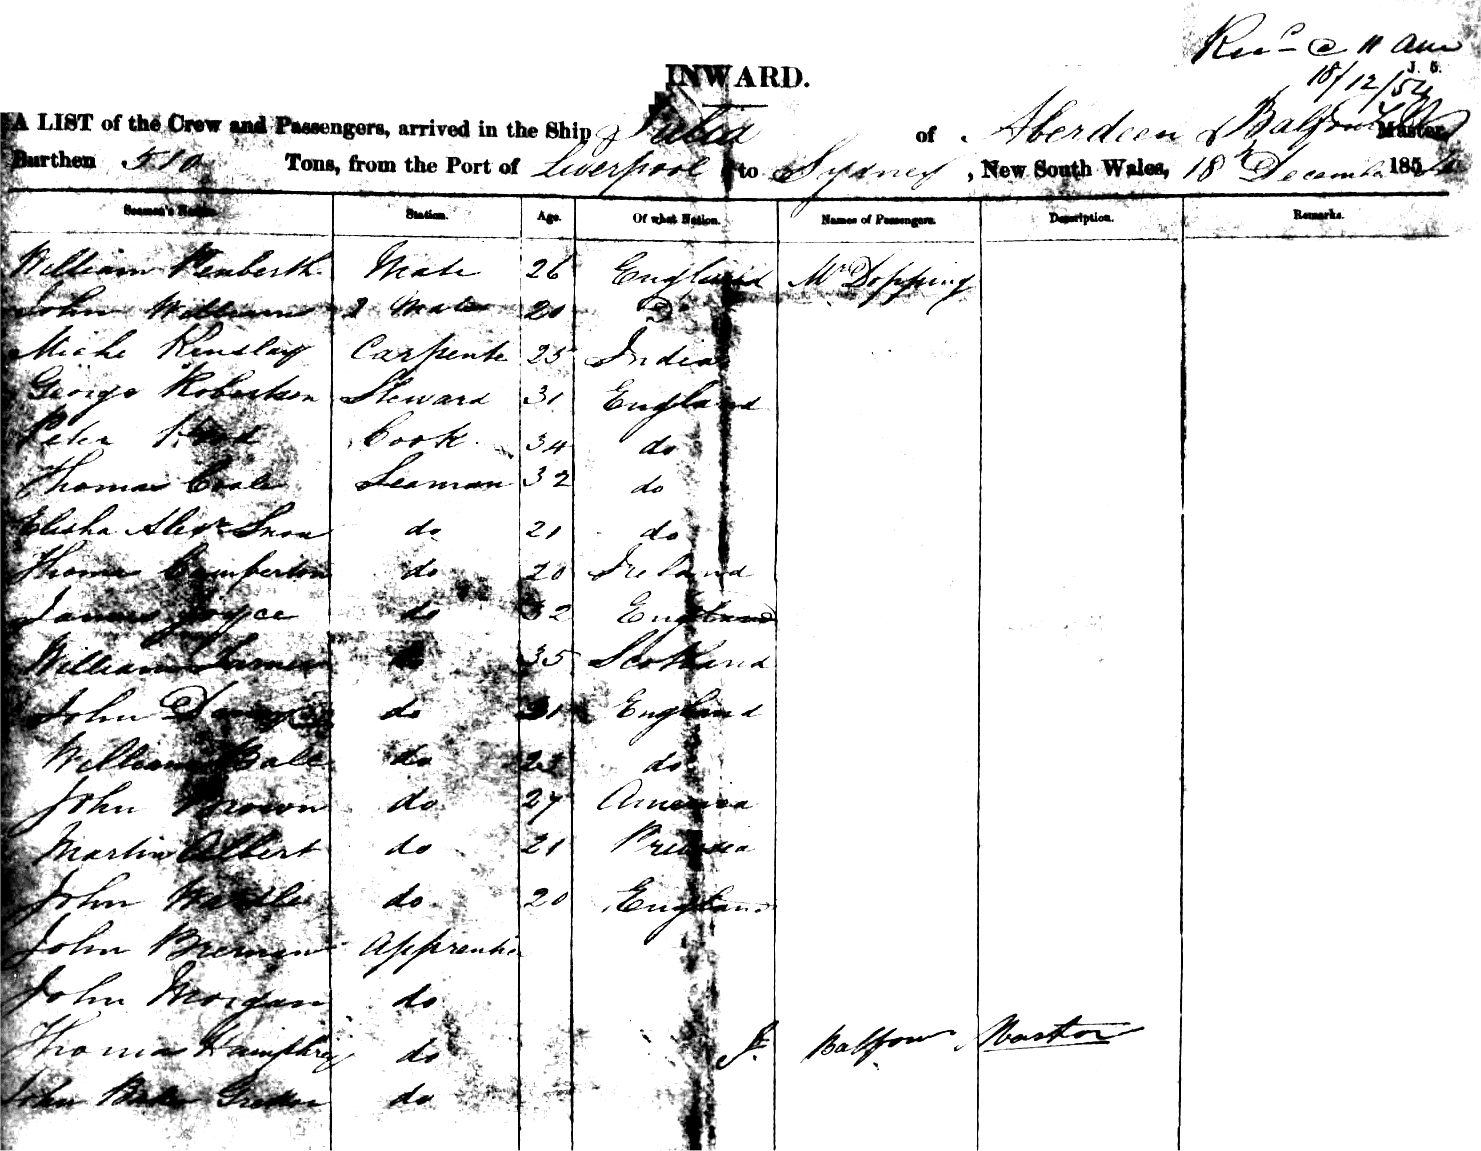 Recd @ 11 am
18/12/54
J. 5.
INWARD.
A LIST of the Crew and Passengers, arrived in the Ship Julia of Aberdeen J Balfour Master,
Burthen 510 Tons, from the Port of Liverpool to Sydney, New South Wales, 18th December 1854
Seamen's Names. Station. Age. Of what Nation. Names of Passengers. Description. Remarks.
William Penberth Mate 26 England Mr Dopping
John William 2 Mate 20 Do
Miche Kinslay Carpente 25 India
George Robertson Steward 31 England
Peter Cook 34 do
Thomas Coale Seaman 32 do
Elisha Alexr Snow do 21 do
Thomas Camperton do 20 Ireland
James Joyce do 32 England
William do 35 Scotland
John do 31 England
William Ball do 23 do
John Brown do 27 America
Martin Albert do 21 Prussia
John do 20 England
John Brennen Apprentice
John Morgan do
Thomas Humphrey do
J. Balfour Master
John do